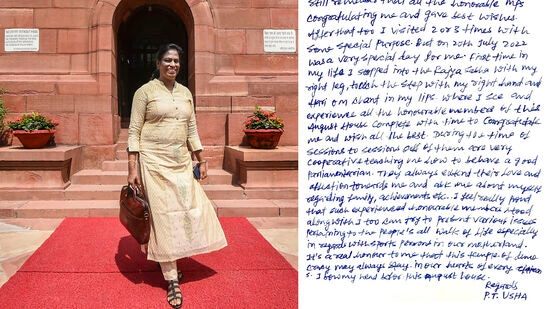 Still remember that all the honorable MPs
congratulating me and give best wishes.
After that too I visited 2 or 3 times with
some special Purpose. But on 20th July 2022
was a very special day for me. First time in
my life I stepped into the Rajya Sabha with my
right leg, touch the step with my right hand and
Hari Om chant in my lips. Where I see and
experience all the honorable members of this
August House complete with time to Congratulate
me and wish all the best. During the time of
sessions to sessions all of them are very
cooperative teaching me how to behave a good
Parliamentarian. They always extend their love and
affection towards me and ask me about myself
regarding family, achievements etc.. I feel really proud
that such experienced honorable members stood
along with I too can try to present various issues
Pertaining to the people's all walk of life especially
in regards with sports person in our motherland.
It's a real honour to me that this temple of demo
cracy may always stay in our hearts of every
I bow my head before this august house.
Regards
P.T. USHA